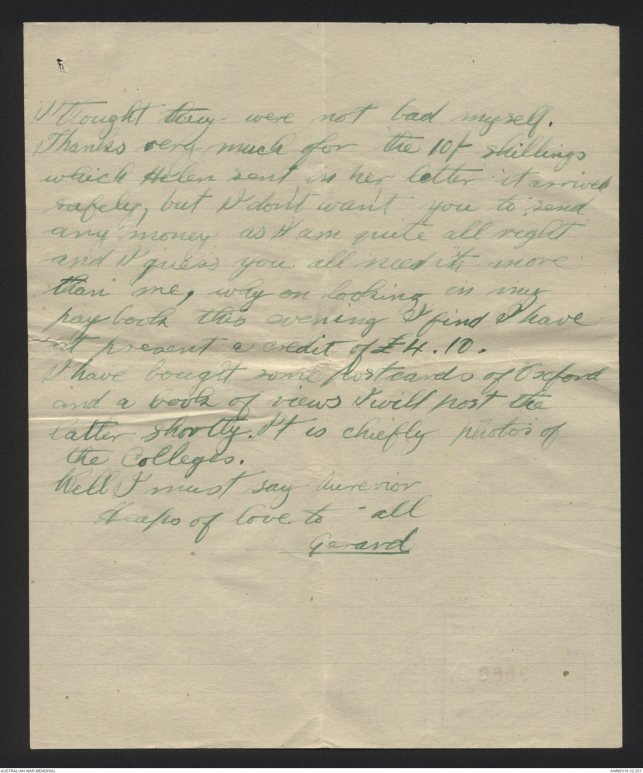 I thought they were not bad myself.
Thanks very much for the 10/- shillings
which Helen sent in her letter it arrived
safely, but I don't want you to send
any money as I am quite all right
and I guess you all need it more
than me, why on looking in my
pay book this evening I find I have
at present a credit of £4.10.
I have bought some postcards of Oxford
and a book of views I will post the
latter shortly. It is chiefly photos of
the Colleges.
Well I must say aurevior
Heaps of love to all
Gerard
AUSTRALIAN WAR MEMORIAL